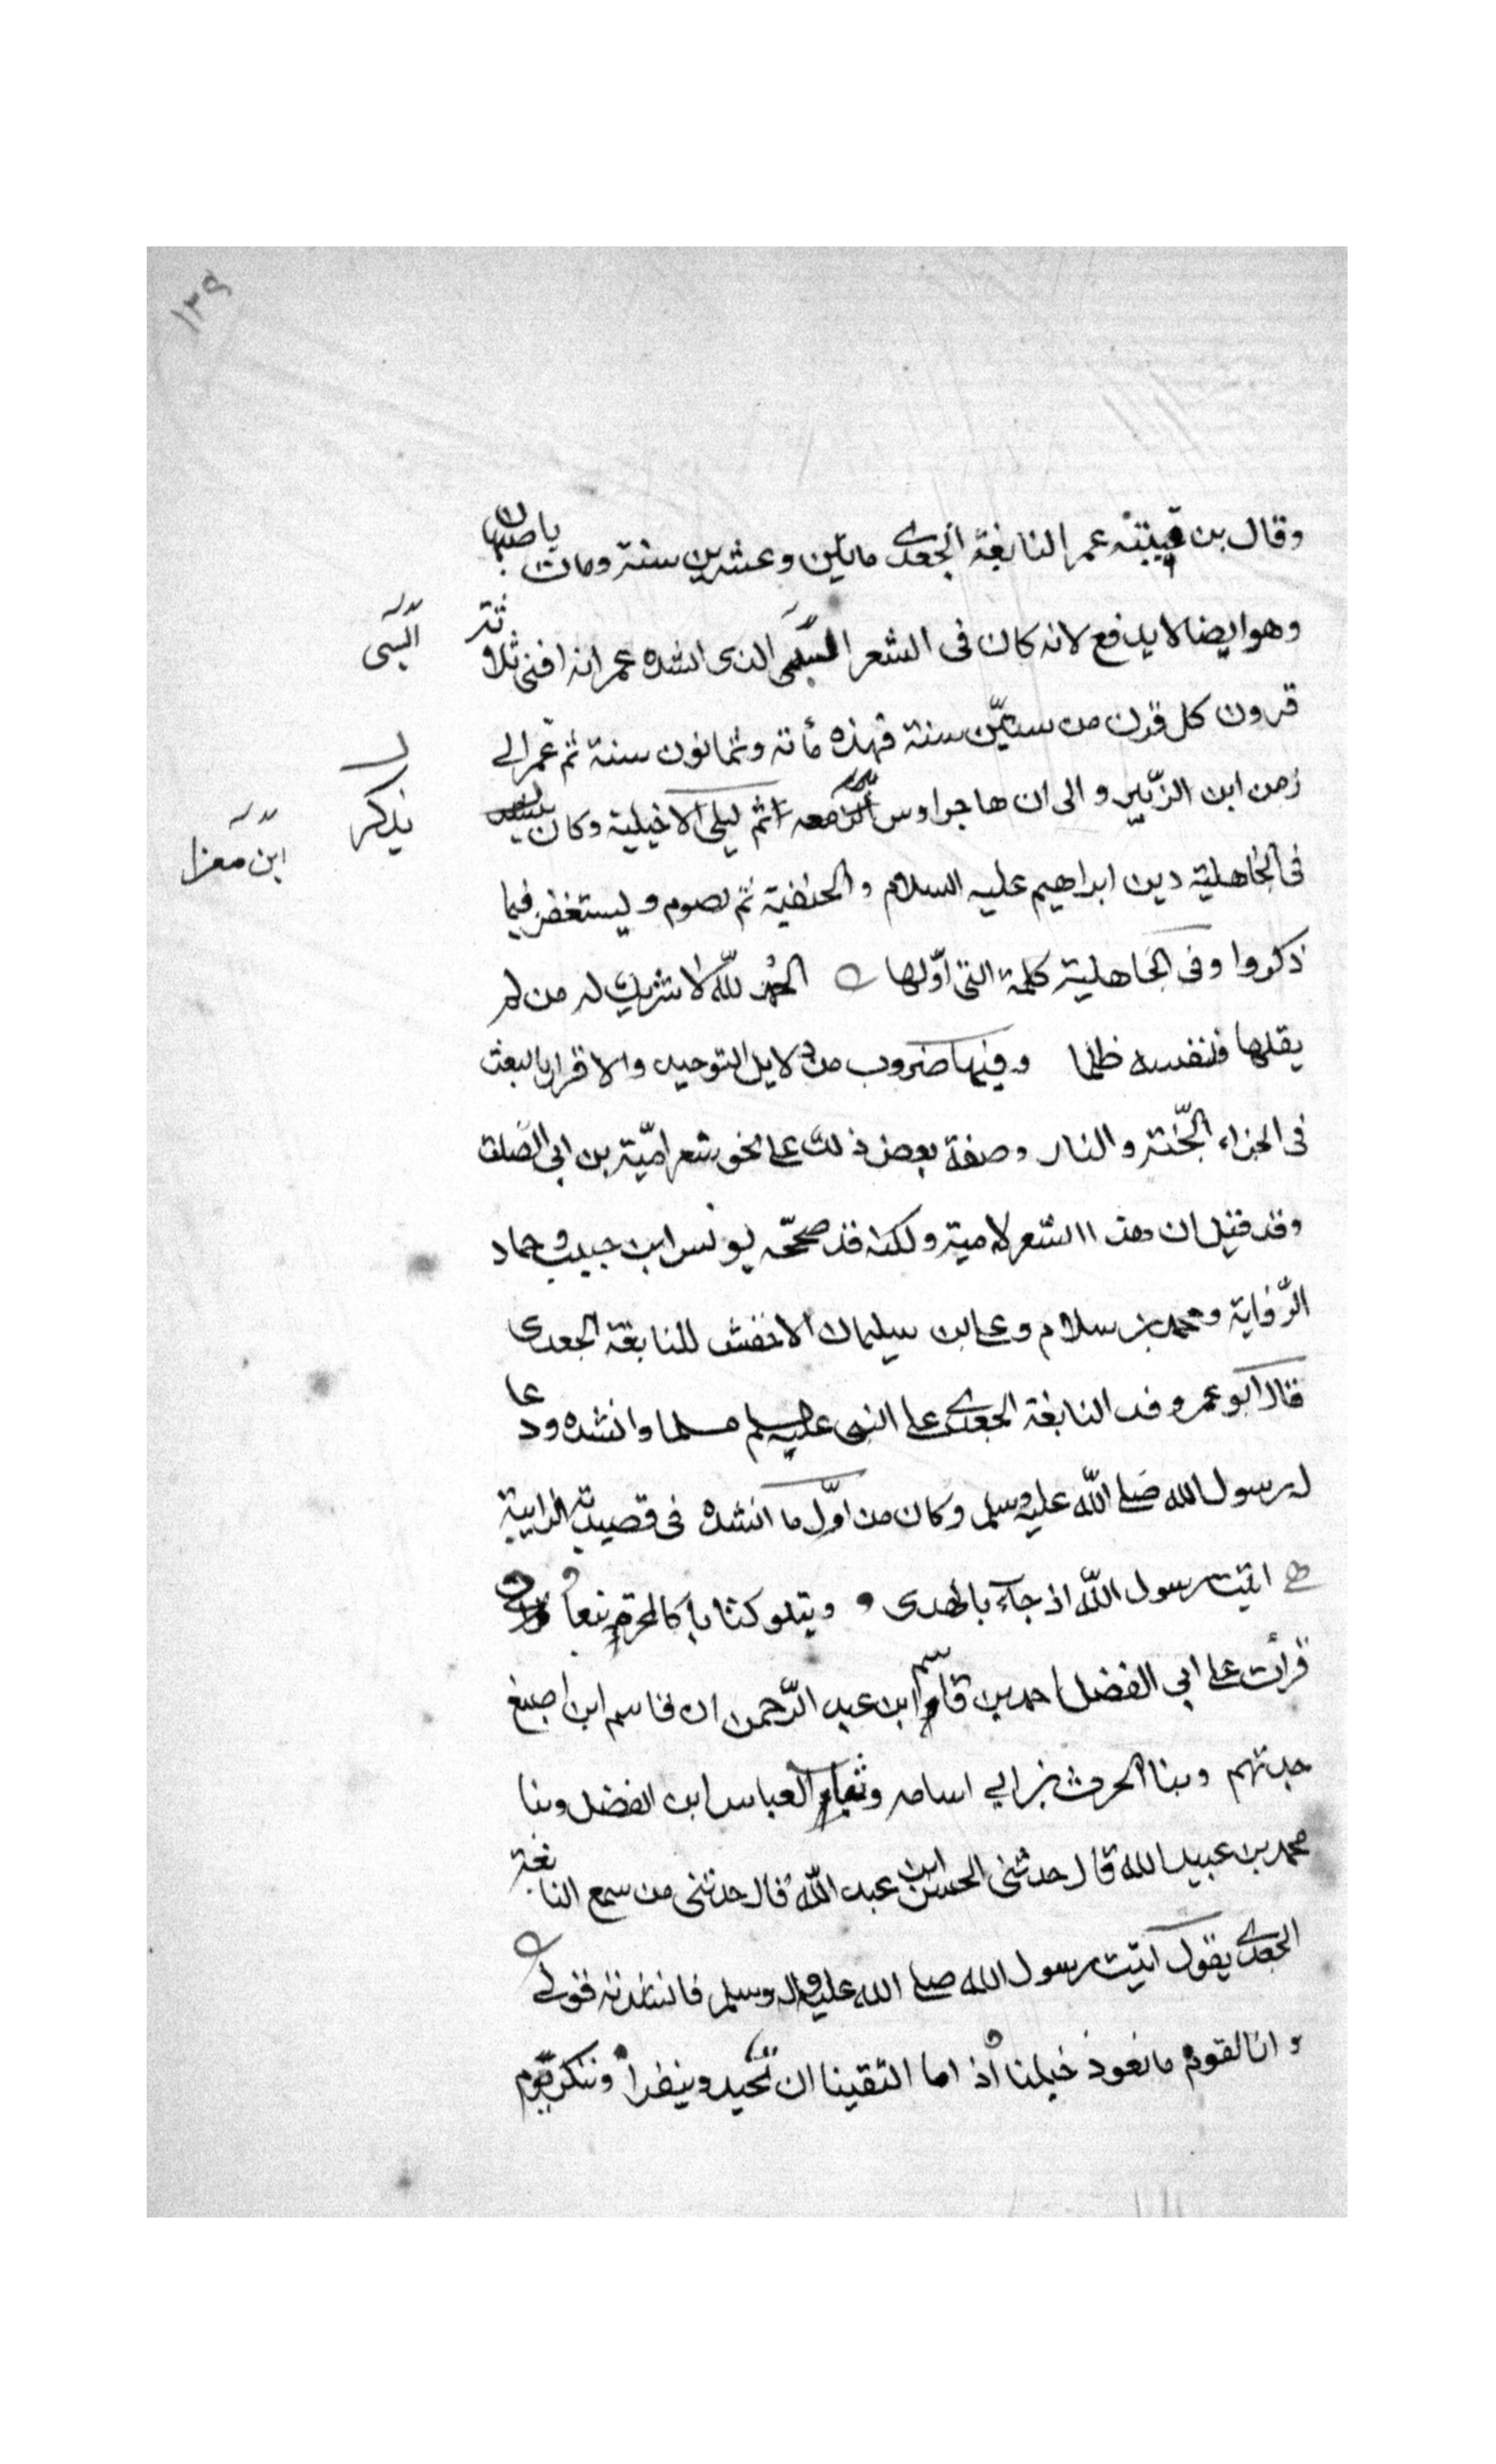 ١٣٩
وقال بن قتيبة عمر النابغة الجعدي مايتين وعشرين سنة ومات باصبهان
وهو ايضا لا يدفع لانه كان فى الشعر السيى الذى انشده عمر انه افنى ثلاثة
السى
قرون كل قرن من ستين سنة فهذه مأتة وثمانون سنة ثم عمر الى
زمن ابن الزبير والى ان هاجر اوس معه ثم ليلى الاخيلية وكان
يذكر
ابن مغرا
فى الجاهلية دين ابراهيم عليه السلام والحنفية ثم يصوم و يستغفر فيما
ذكروا وفى الجاهلية كلمة التى أوّلها الحمد للّه لا شريك له من لم
يقلها فنفسه ظلما وفيها ضروب من دلايل التوحيد والاقرار بالبعث
فى الجزاء الجّنة والنار وصفة بعض ذلك على نحو شعر اميّة بن ابى الصّلت
وقد قيل ان هذا الشعر لامية ولكنه قد صححّه يونس ابن حبيب وحماد
الرّواية ومحمد بن سلام وعلى ابن سليمان الاخفش للنابغة الجعدى
قال ابو عمر وفد النابغة الجعدي على النبى عليه سلم مسلما وانشده ودعا
له رسول الله صلى اللّه عليه وسلم وكان من اوّل ما انشده فى قصيدته الرايية
اتيت رسول اللّه اذ جآء بالهدى و ويتلو كتابا كالمجرة نيرا
قرأت على ابى الفضل احمد بن قاسم ابن عبد الرّحمن ان قاسم ابن اصبغ
حدثهم وبنا الحرث بن ابي اسامه وثنا العباس ابن الفضل وبنا
محمد بن عبيد الله قال حدثنى الحسن ابن عبد اللّه قال حدثنى من سمع النابغة
الجعدي يقول اتيت رسول الله صلى الله عليه واله وسلم فانشدته قولي
و انا لقوم ما نعوذ خيلنا اذ اما التقينا ان تحيد وينفرا وننكر يوم